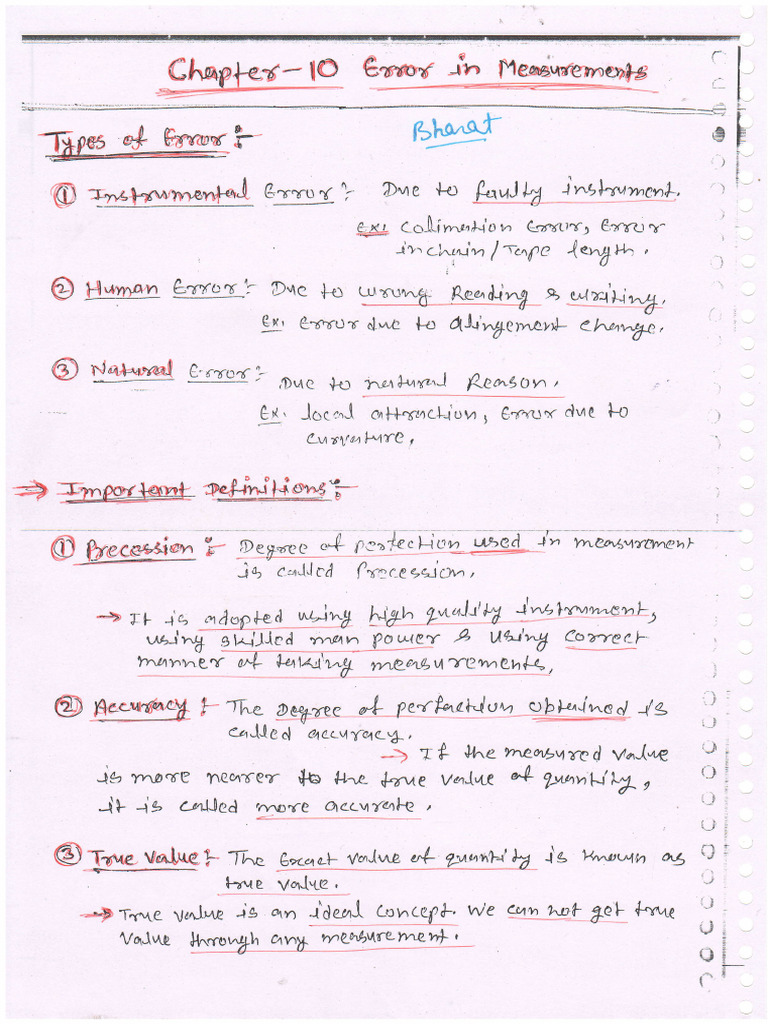 Chapter-10 Error in Measurements
Bharat
Types of Error:-
① Instrumental Error:- Due to faulty instrument.
Ex: Colimation Error, Error
in chain/Tape length.
② Human Error:- Due to wrong Reading & writing.
Ex. Error due to Alingement change.
③ Natural Error:- Due to natural Reason.
Ex. local attraction, Error due to
curvature.
→ Important Definitions:-
① Precession:- Degree of perfection used in measurement
is called Precession.
→ It is adopted using high quality instrument,
using skilled man power & using correct
manner of taking measurements.
② Accuracy:- The Degree of perfaction obtained is
called accuracy.
→ If the measured value
is more nearer to the true value of quantity,
it is called more accurate.
③ True value:- The Exact value of quantity is known as
true value.
→ True value is an ideal concept. We can not get true
value through any measurement.